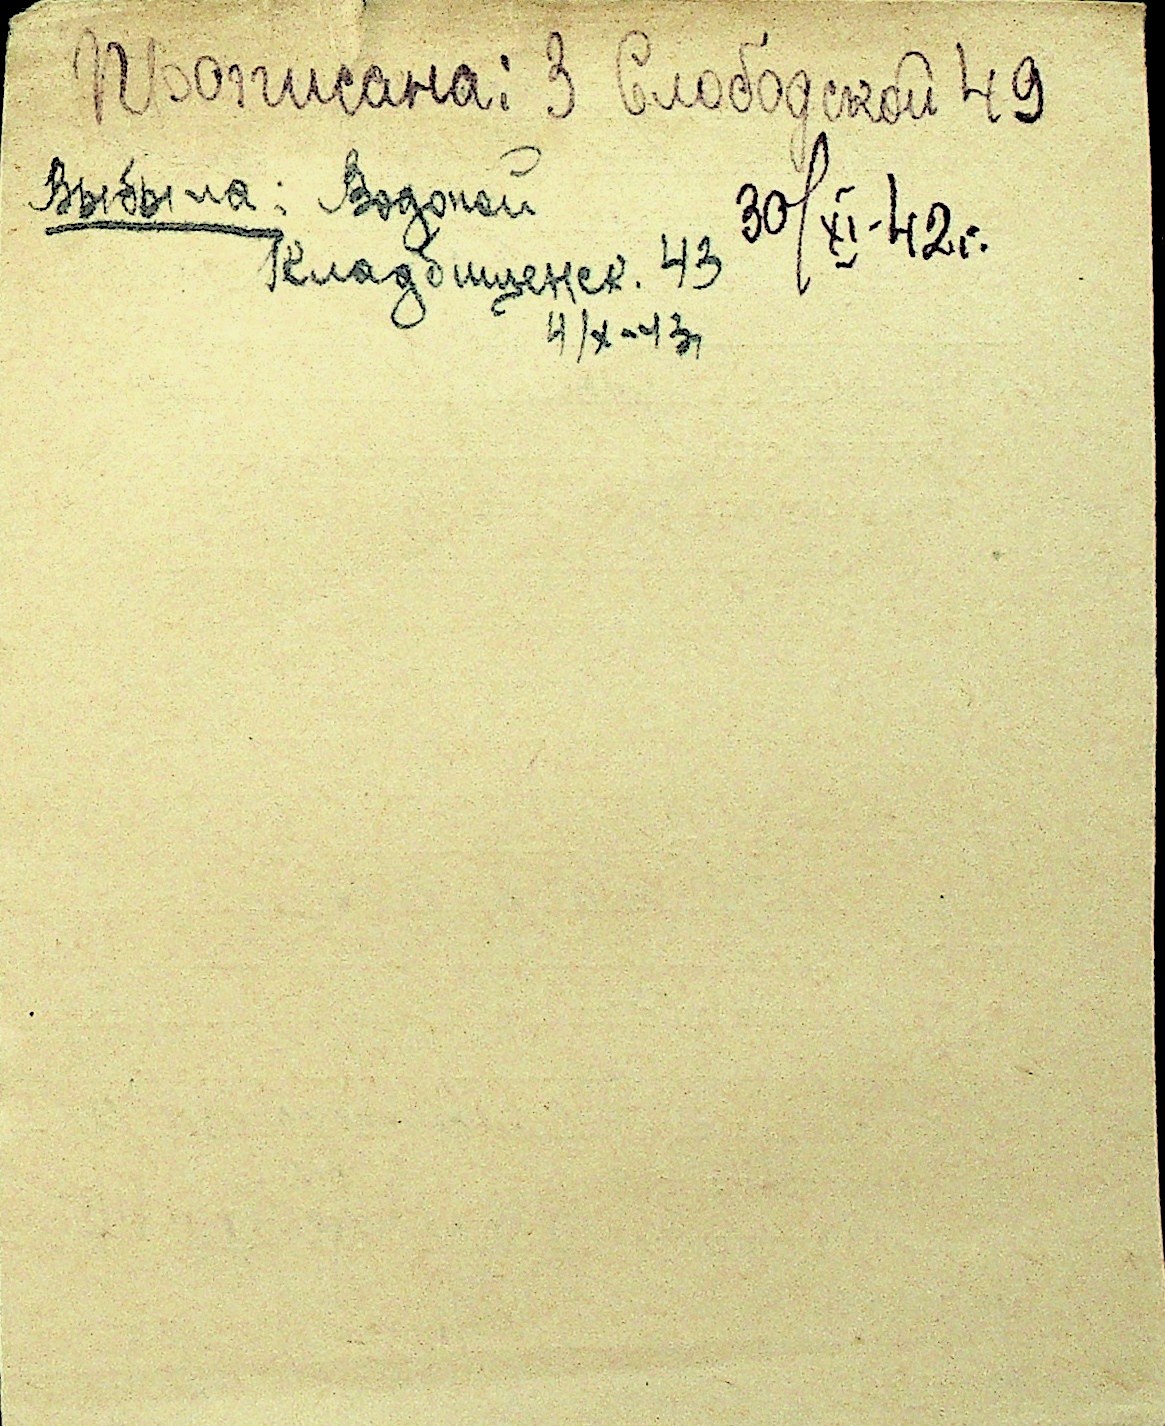 Прописана: 3 Слободской 49
30/XI-42г.
Выбыла: Водопой
Кладбищенск. 43
4/X-43г